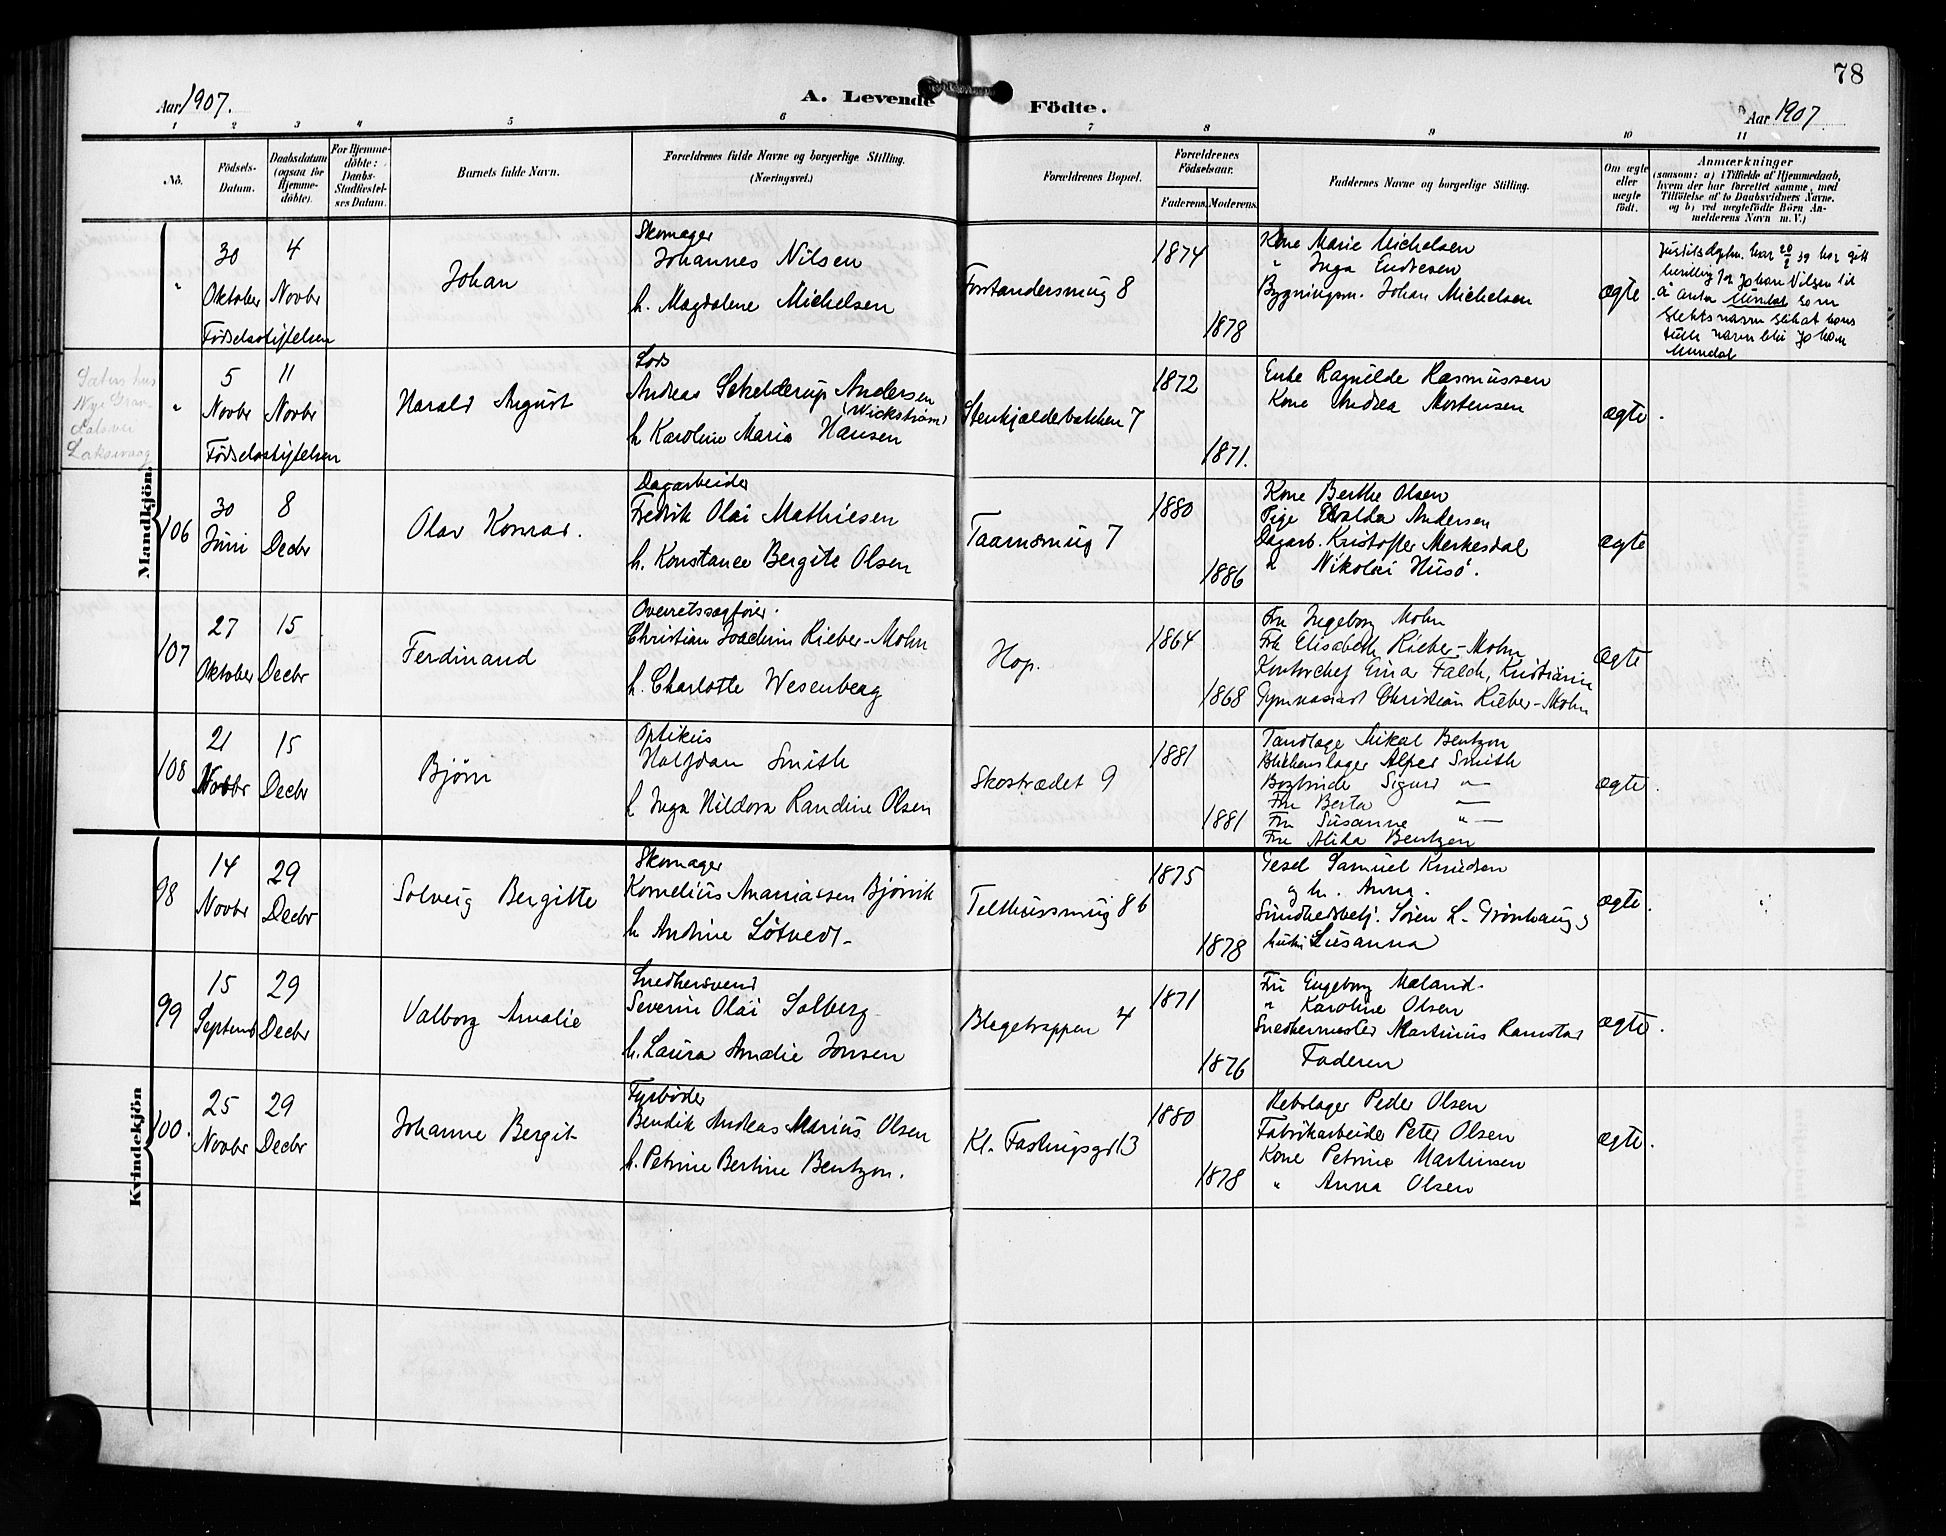 78
Aar 1907.
A. Levende Födte.
Aar 1907.
1 2 3 4 5 6 7 8 9 10 11
No.
Födsels-Datum.
Daabsdatum (ogsaa for Hjemme-döbte).
For Hjemme-döbte: Daabs-Stadfæstel-ses Datum.
Barnets fulde Navn.
Forældrenes fulde Navne og borgerlige Stilling. (Næringsvei.)
Forældrenes Bopæl.
Forældrenes Födselsaar.
Faderens. Moderens.
Faddernes Navne og borgerlige Stilling.
Om ægte eller uægte födt.
Anmærkninger
(saasom: a) i Tilfælde af Hjemmedaab,
hvem der har forrettet samme, med
Tilföielse af to Daabsvidners Navne.
og b) ved uægtefödte Börn An-
melderens Navn m. V.)
Mandkjön.
"
30 Oktober
4 Novbr
Fødselsstiftelsen
Johan
Skomager
Johannes Nilsen
h. Magdalene Michelsen
Forstandersmug 8
1874
1878
Kone Marie Michelsen
" Inga Endresen
Bygningsm. Johan Michelsen
ægte
Justitsdeptm. har 20/2 39 har gitt
bevilling for Johan Nilsen til
å anta Mundal som
slektsnavn slik at hans
fulle navn blir Johan
Mundal
"
5 Novbr
11 Novbr
Fødselsstiftelsen
Harald August
Lods
Andreas Schelderup Andersen
(Wickstrøm)
h Karoline Maria Hansen
Stenkjælderbakken 7
1872
1871.
Enke Ragnilde Rasmussen
Kone Andrea Mortensen
ægte.
Laksevaag
106
30 Juni
8 Decbr
Olav Konrad.
Dagarbeider
Fredrik Olai Mathiesen
h. Konstance Bergite Olsen
Taarnsmug 7
1880
1886
Kone Berthe Olsen
Pige Evalda Andersen
Dagarb. Kristoffer Merkesdal
" Nikolai Husø.
ægte
107
27 Oktober
15 Decbr
Ferdinand
Overretssagfører.
Christian Joachim Rieber-Mohn
h. Charlotte Wesenberg
Hop.
1864
1868
Fru Ingeborg Mohn
Frk Elisabeth Rieber-Mohn
Kontorchef Einar Falch, Kristiania
Gymnasiast Christian Rieber-Mohn
ægte
108
21 Novbr
15 Decbr
Bjørn
Optikus
Halfdan Smith
h Inga Hildora Randine Olsen
Skostrædet 9
1881
1881
Tandlæge Mikal Bentzon
Blikkenslager Alfred Smith
Bogbinder Sigurd "—
Fru Berta —
Fru Susanne "—
Fru Alida Bentzen
ægte.
Kvindekjön
98
14 Novbr
29 Decbr
Solveig Bergitte
Skomager
Kornelius Ananiassen Bjørvik
h Andrine Løtvedt
Telthussmug 8b
1875
1878
Gesel Samuel Knudsen
og h. Anna.
Sundhedsbetj. Søren L. Grønhaug og
hustru Susanna
ægte.
99
15 Septemb
29 Decbr
Valborg Amalie
Snedkersvend
Severin Olai Solberg
h. Laura Amalie Jonsen
Blegetrappen 4
1871
1876
Fru Engeborg Mæland.
" Karoline Olsen
Snedkermester Martinius Ramstad
Faderen
ægte.
100.
25 Novbr
29 Decbr
Johanne Bergit
Fyrbøder
Bendik Andreas Marius Olsen
h. Petrine Bertine Bentzon.
Kl. Fastingsgd 13
1880
1878
Rebslager Peder Olsen
Fabrikarbeider Peter Olsen
Kone Petrine Martinsen
" Anna Olsen
ægte.